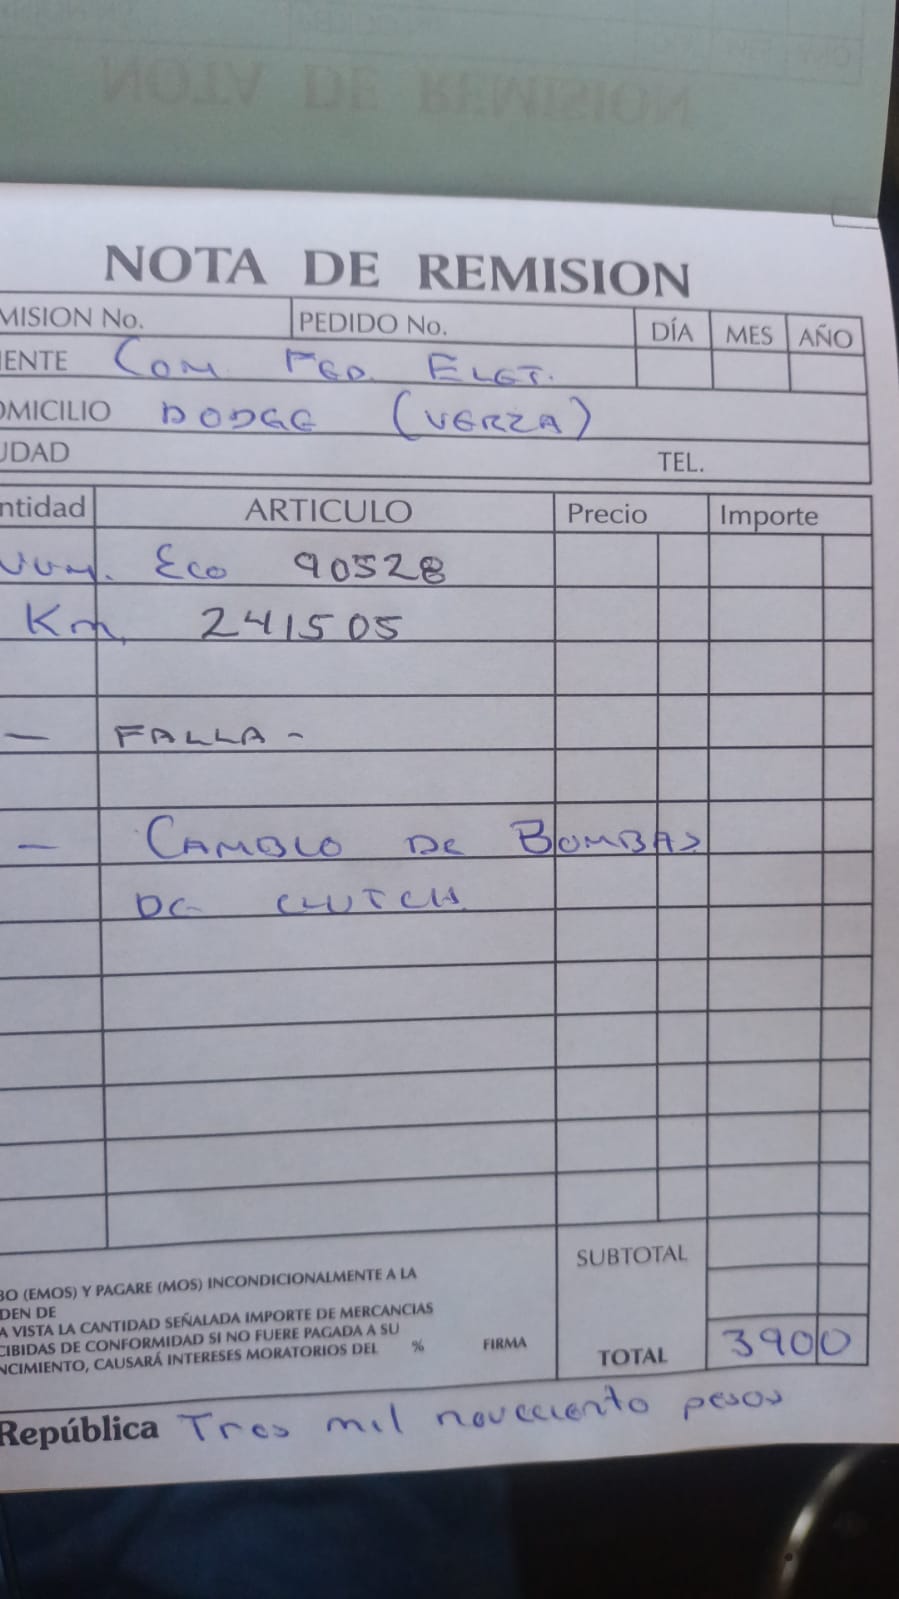 NOTA DE REMISION
MISION No. PEDIDO No. DÍA MES AÑO
IENTE Com. FED. ELET.
OMICILIO DODGE (VERZA)
UDAD TEL.
ntidad ARTICULO Precio Importe
Num. Eco 90528
Km 241505
— FALLA -
— CAMBIO DE BOMBAS
DE CLUTCH
SUBTOTAL
BO (EMOS) Y PAGARE (MOS) INCONDICIONALMENTE A LA
DEN DE
A VISTA LA CANTIDAD SEÑALADA IMPORTE DE MERCANCIAS
CIBIDAS DE CONFORMIDAD SI NO FUERE PAGADA A SU
NCIMIENTO, CAUSARÁ INTERESES MORATORIOS DEL % FIRMA
TOTAL 3900
República Tres mil novecciento pesos